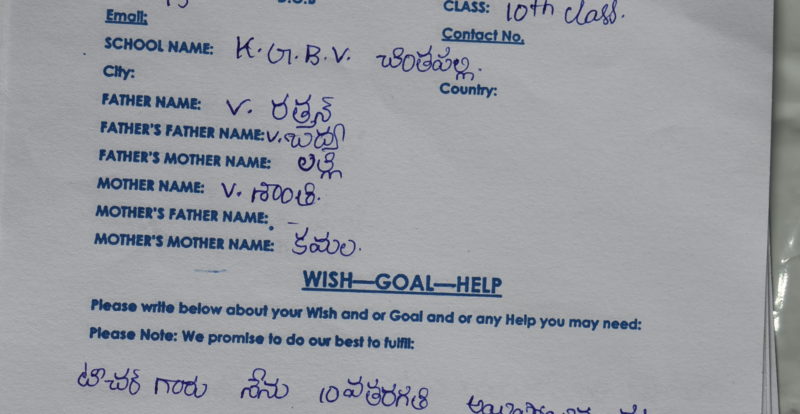 D.O.B
Email:
CLASS: 10th class.
Contact No.
SCHOOL NAME: K.G.B.V. చింతపల్లి.
City:
Country:
FATHER NAME: V. రత్నన్
FATHER'S FATHER NAME: V.
FATHER'S MOTHER NAME:
MOTHER NAME: V. శాంతి.
MOTHER'S FATHER NAME: –
MOTHER'S MOTHER NAME: కమల.
WISH—GOAL—HELP
Please write below about your Wish and or Goal and or any Help you may need:
Please Note: We promise to do our best to fulfill:
టీచర్ గారు నేను 10వతరగతి